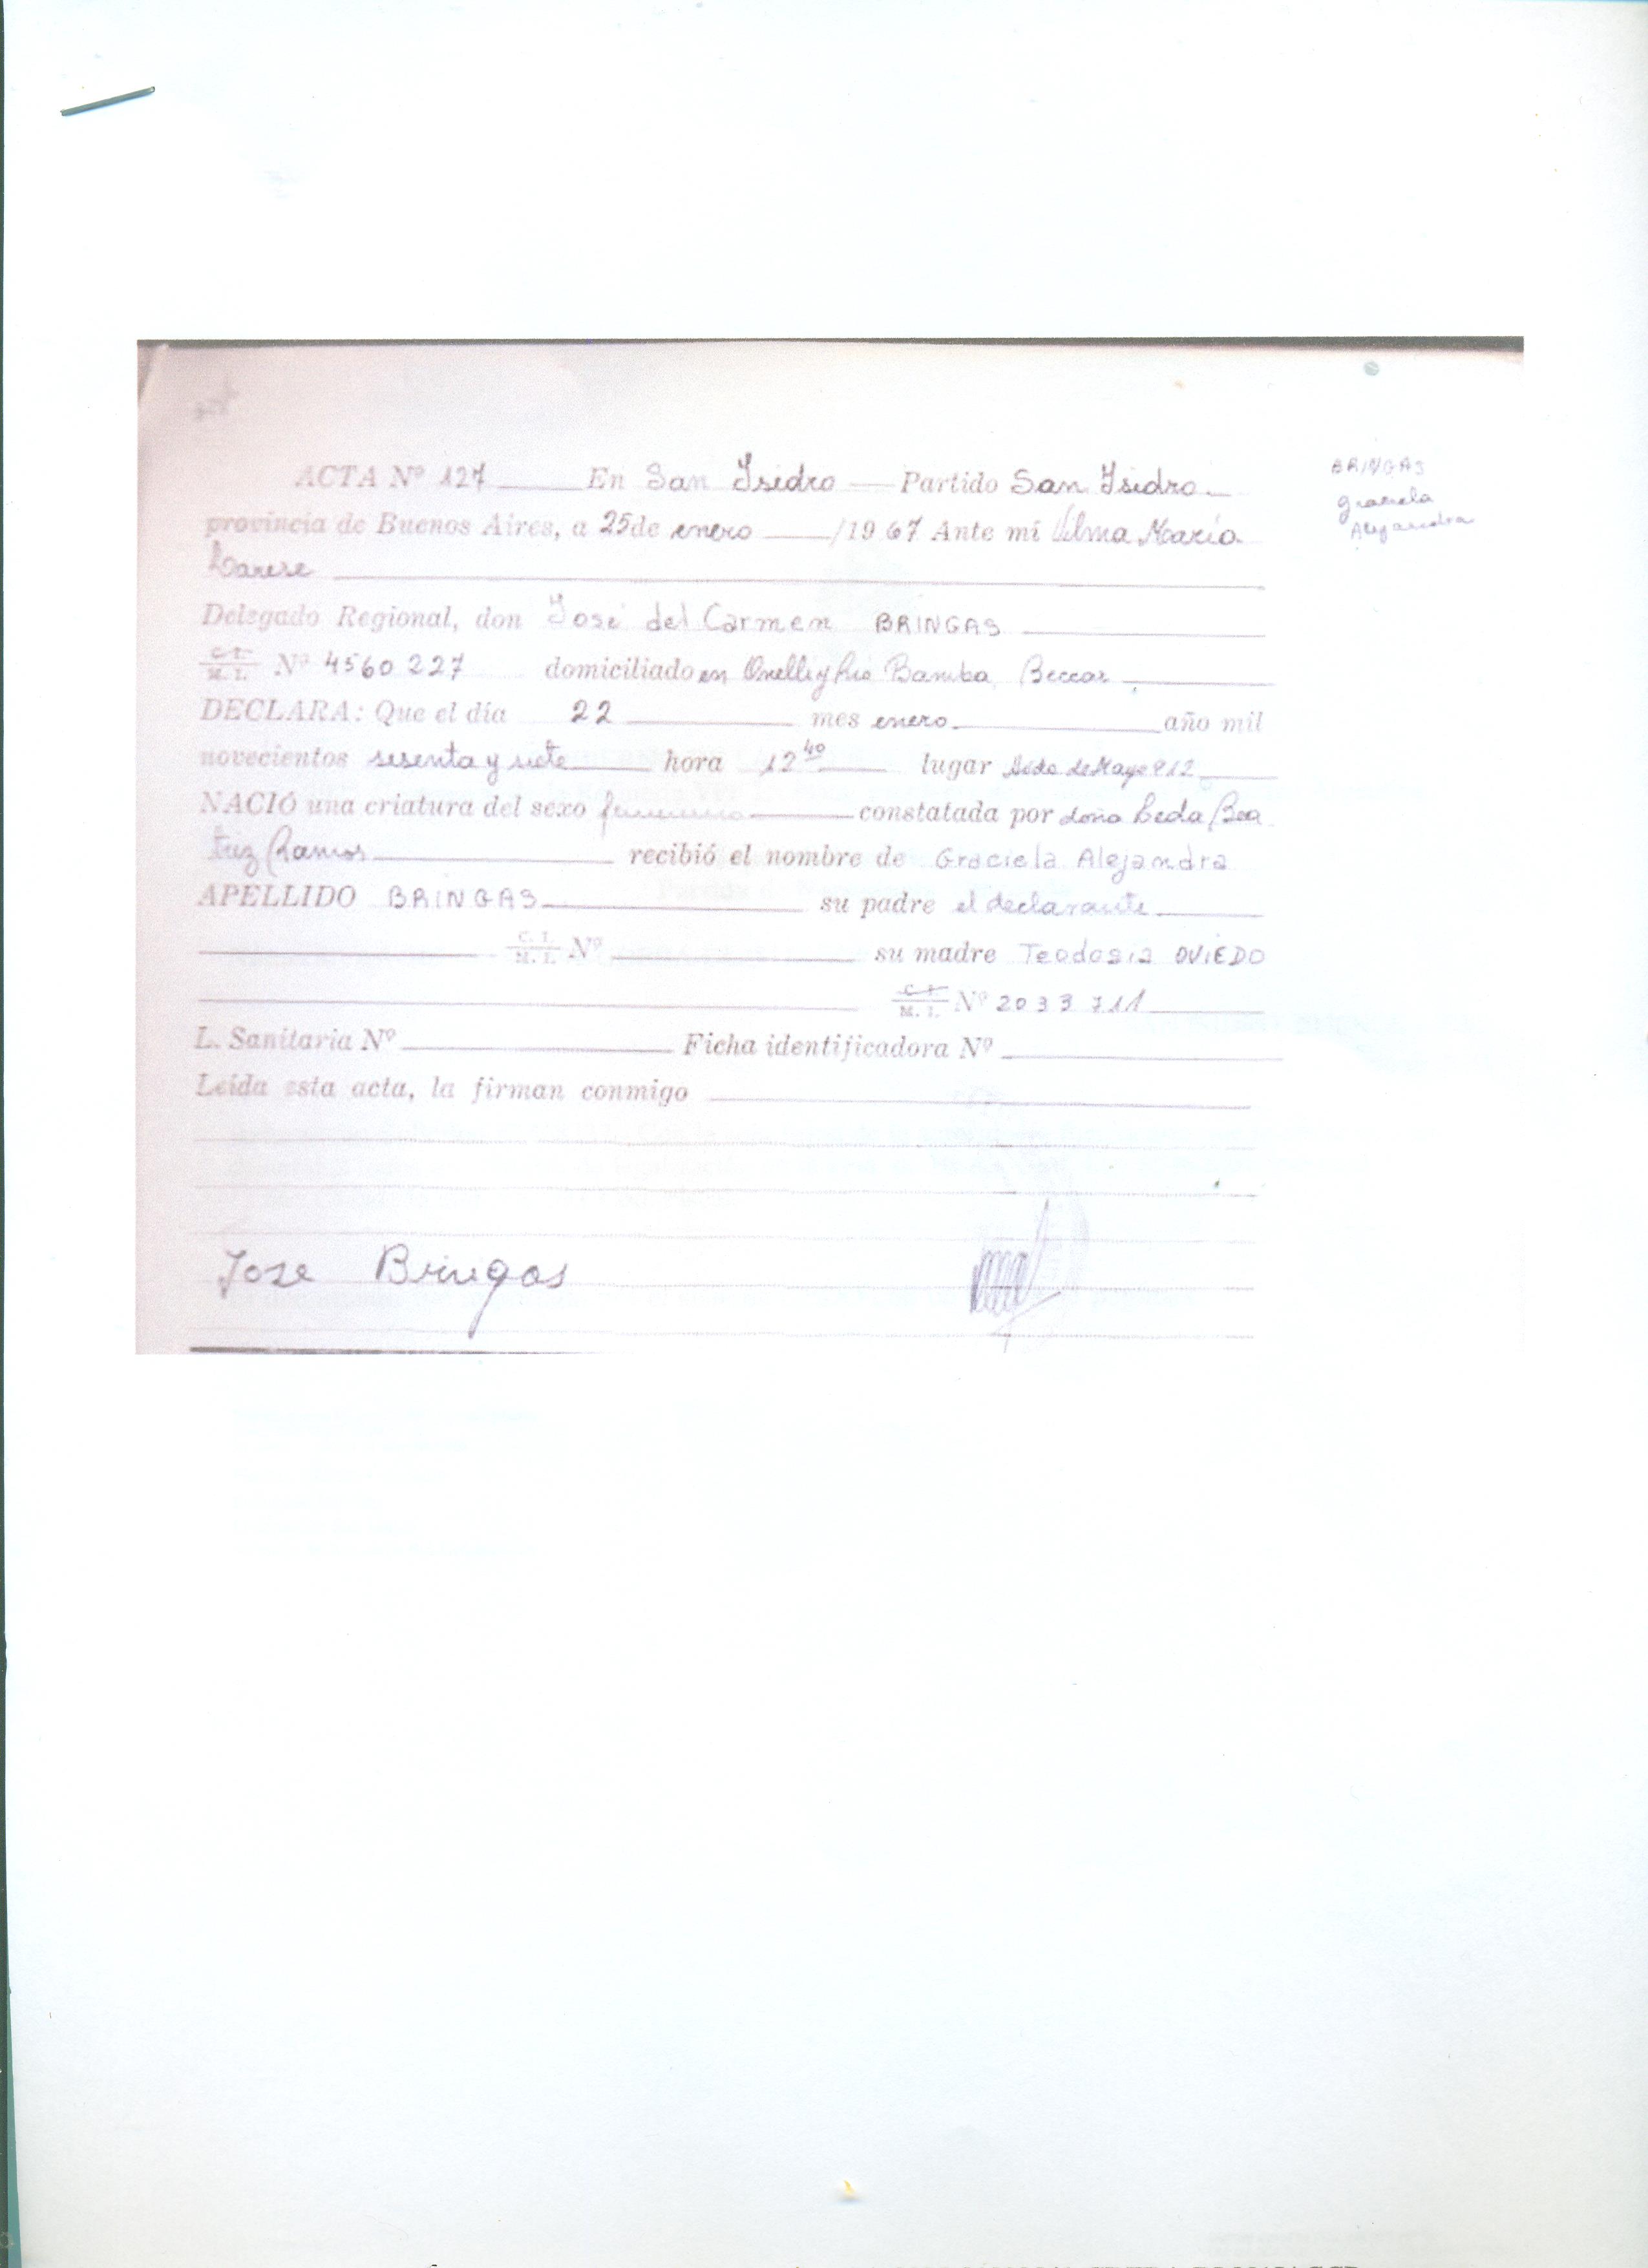 ACTA Nº 127 En San Isidro Partido San Isidro
BRINGAS
Graciela
Alejandra
provincia de Buenos Aires, a 25 de enero /1967 Ante mí Vilma María
Delegado Regional, don José del Carmen BRINGAS
C. I. M. I. Nº 4560227 domiciliado en Onelli y Rio Bamba Beccar
DECLARA: Que el día 22 mes enero año mil
novecientos sesenta y siete hora 12 40 lugar de Mayo 912
NACIÓ una criatura del sexo femenino constatada por doña Leda Bea
triz Ramos recibió el nombre de Graciela Alejandra
APELLIDO BRINGAS su padre el declarante
C. I. M. I. Nº su madre Teodosia OVIEDO
C. I. M. I. Nº 2033711
L. Sanitaria Nº Ficha identificadora Nº
Leída esta acta, la firman conmigo
Jose Bringas